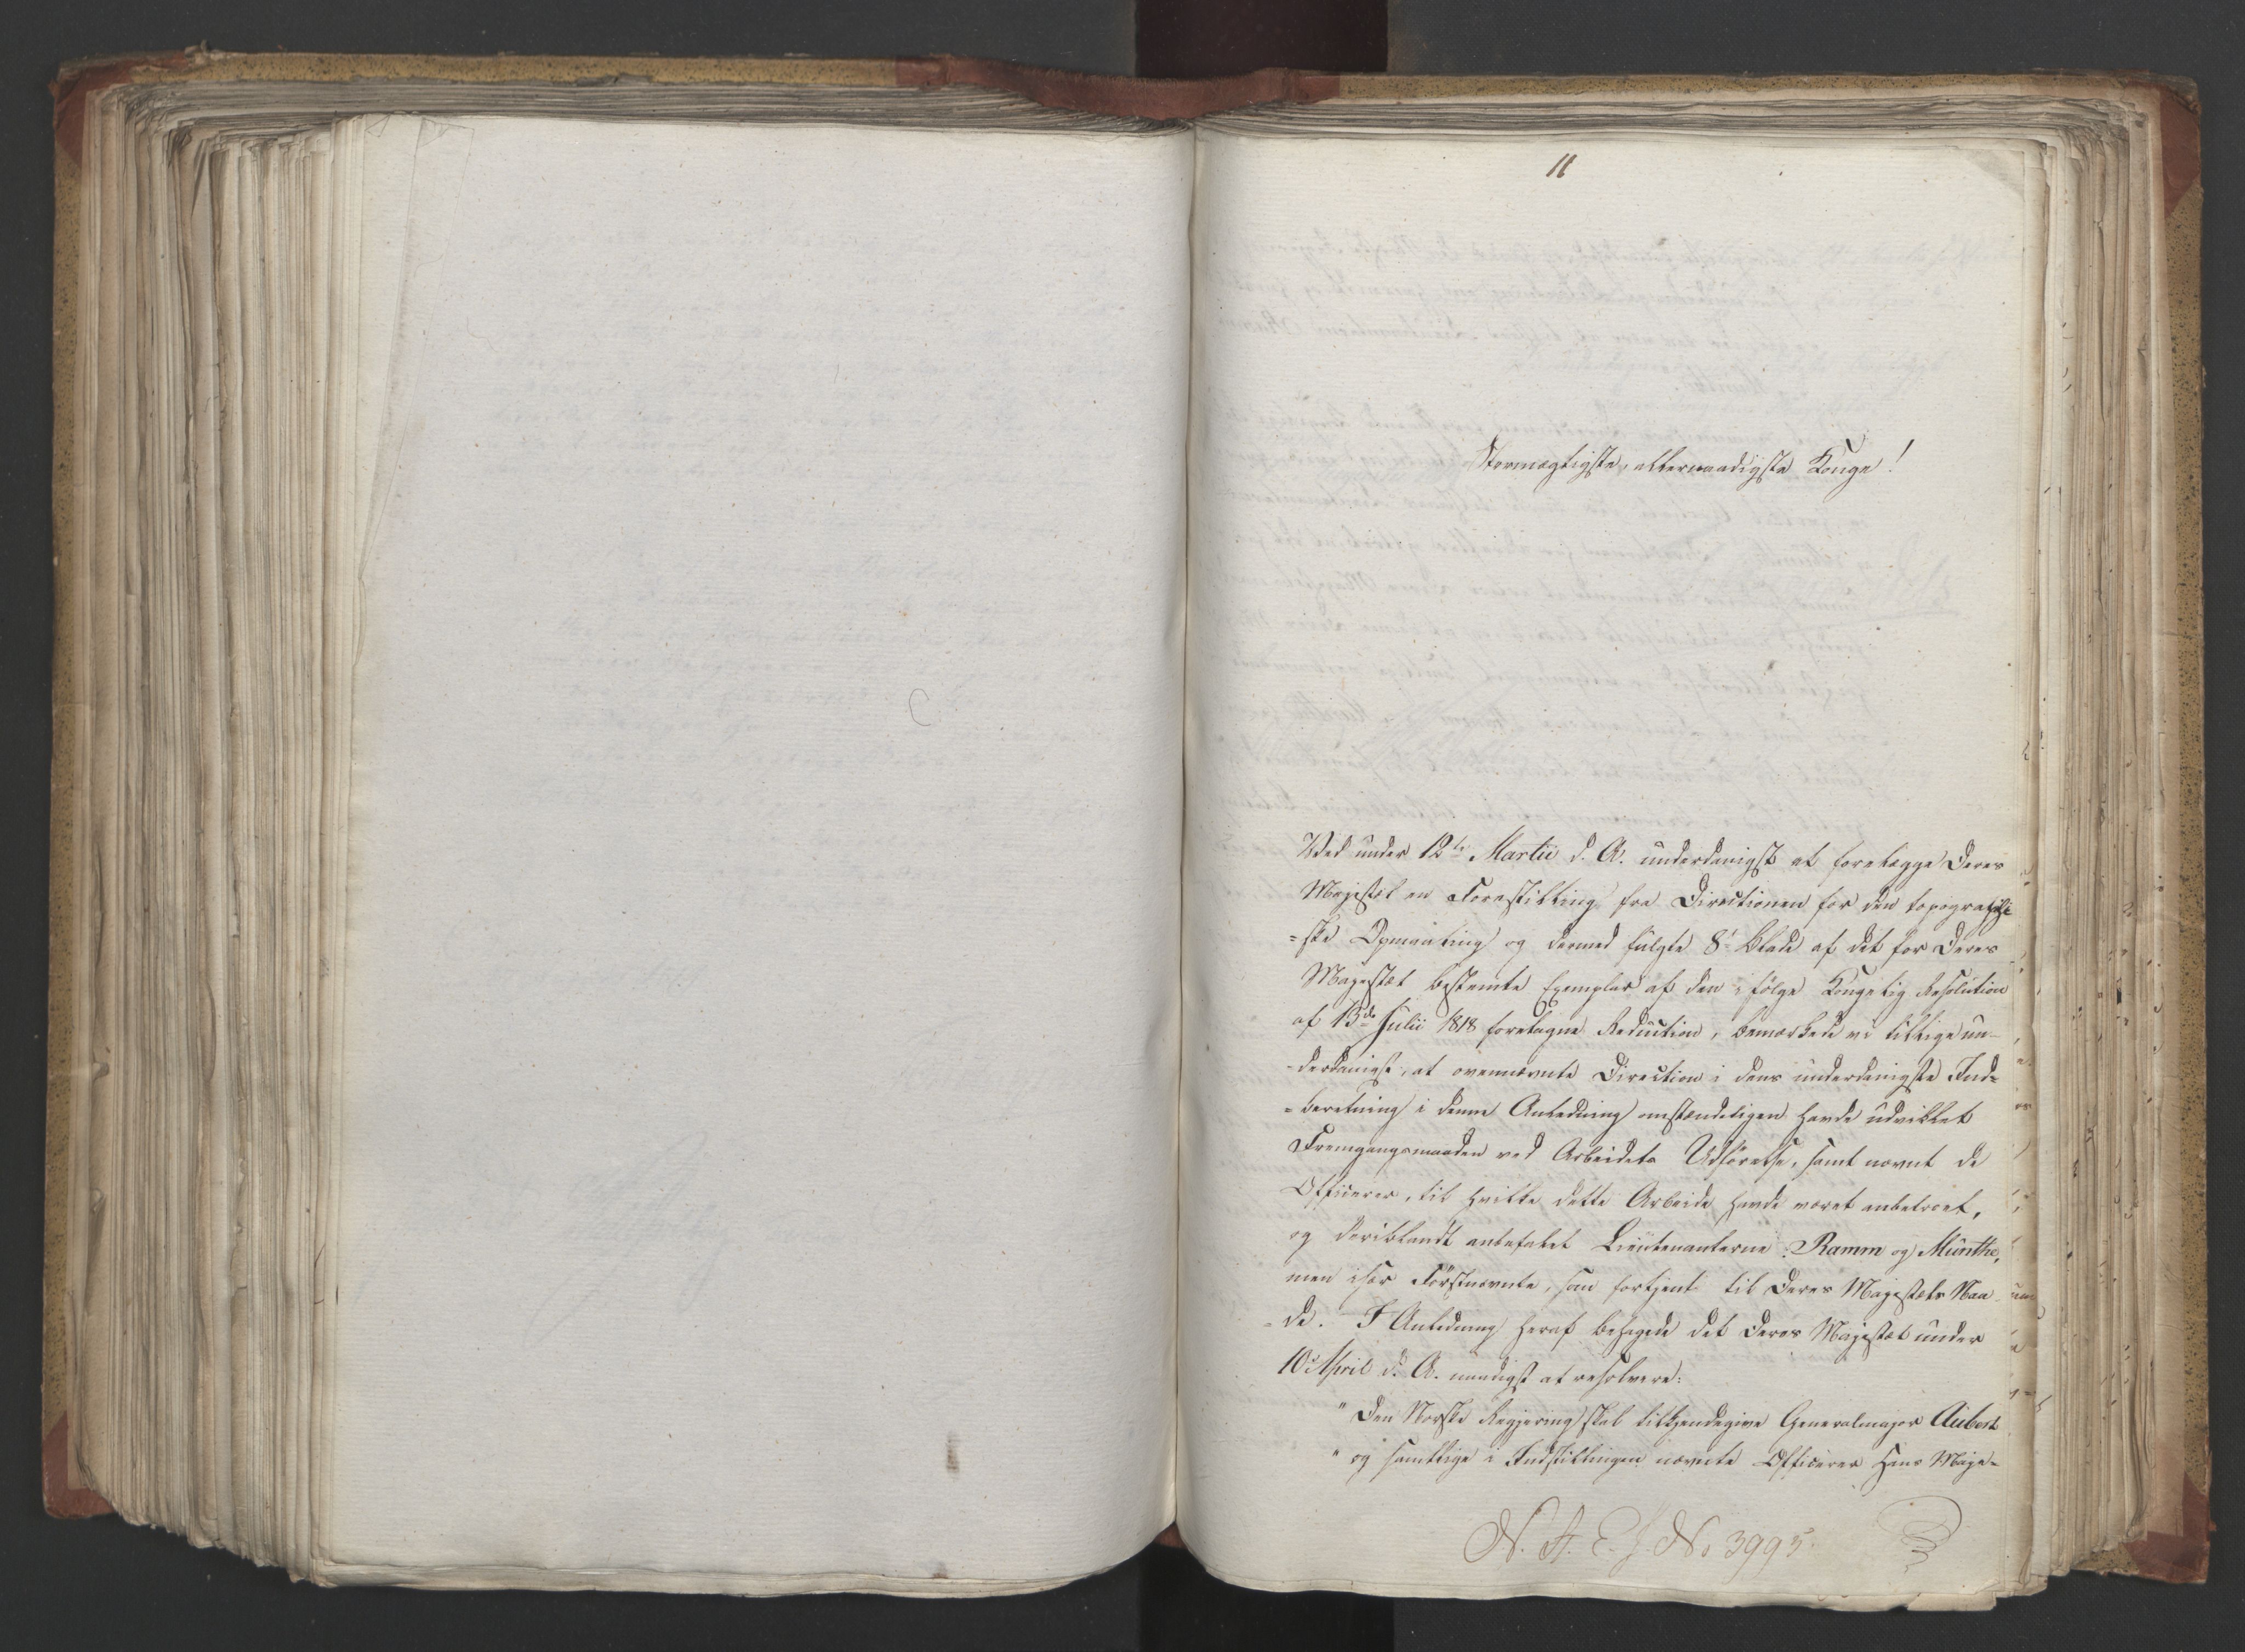 11
Stormægtigste, allernaadigste Konge!
Ved under 12te Martii d. A. underdanigst at forelægge Deres
Majestæt en Forestilling fra Directionen for den topographi
=ske Opmaaling og dermed fulgte 8 Blade af det for Deres
Majestæt bestemte Exemplar af den ifölge Kongelig Resolution
af 13de Julii 1818 foretagne Reduction, bemærkede vi tillige un-
-derdanigst, at ovennævnte Direction i dens underdanigste Ind=
=beretning i denne Anledning omstændeligen havde udviklet
Fremgangsmaaden ved Arbeidets Udförelse, samt nævnt de
Officerer, til hvilke dette Arbeide havde været anbetroet,
og deriblandt anbefalet Lieutenanterne Ramm og Munthe,
men især Förstnævnte, som fortjent til Deres Majestæts Naa
=de. I Anledning heraf behagede det Deres Majestæt under
10 April d. A. naadigst at resolvere:
" Den Norske Regjering skal tilkjendegive Generalmajor Aubert
" og samtlige i Indstillingen nævnte Officerer Hans Maje=
N. A. E. J. No 3995.